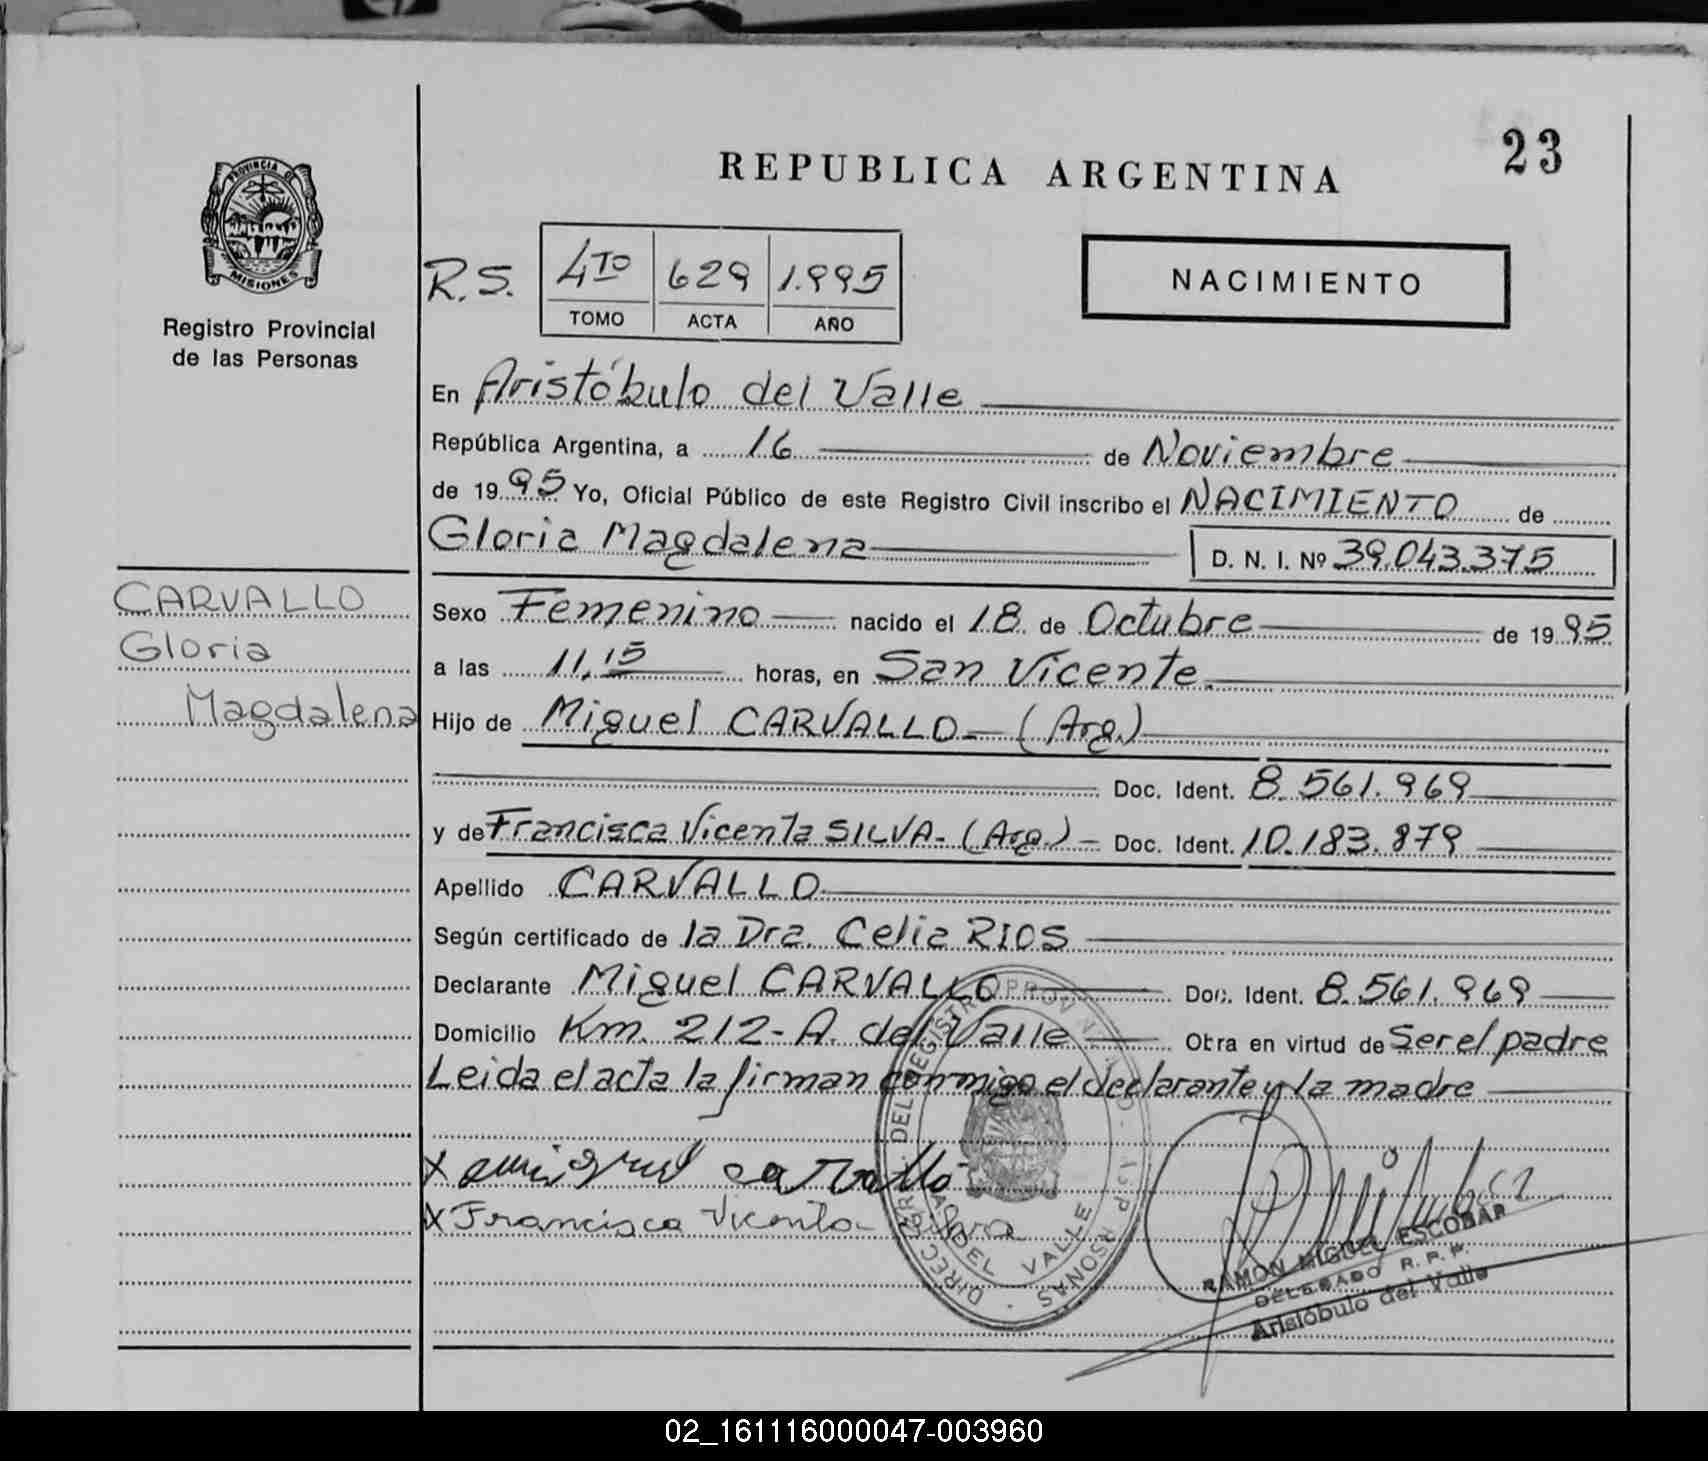 23
REPUBLICA ARGENTINA
PROVINCIA DE
MISIONES
Registro Provincial
de las Personas
R.S. 4TO 629 1.995
TOMO ACTA AÑO
NACIMIENTO
En Aristóbulo del Valle
República Argentina, a 16 de Noviembre
de 1995 Yo, Oficial Público de este Registro Civil inscribo el NACIMIENTO de
Gloria Magdalena D. N. I. Nº 39.043.375
CARVALLO
Gloria
Magdalena
Sexo Femenino nacido el 18 de Octubre de 1995
a las 11,15 horas, en San Vicente.
Hijo de Miguel CARVALLO- (Arg.)
Doc. Ident. 8.561.969
y de Francisca Vicenta SILVA- (Arg.) - Doc. Ident. 10.183.879
Apellido CARVALLO
Según certificado de la Dra. Celia RIOS
Declarante Miguel CARVALLO Doc. Ident. 8.561.969
Domicilio Km. 212- A. del Valle Obra en virtud de Ser el padre
Leida el acta la firman conmigo el declarante y la madre
X miguel carvallo
X Francisca Vicenta Silva
DEL VALLE
RAMON MIGUEL ESCOBAR
DELEGADO R. P. P.
Aristóbulo del Valle
02_161116000047-003960